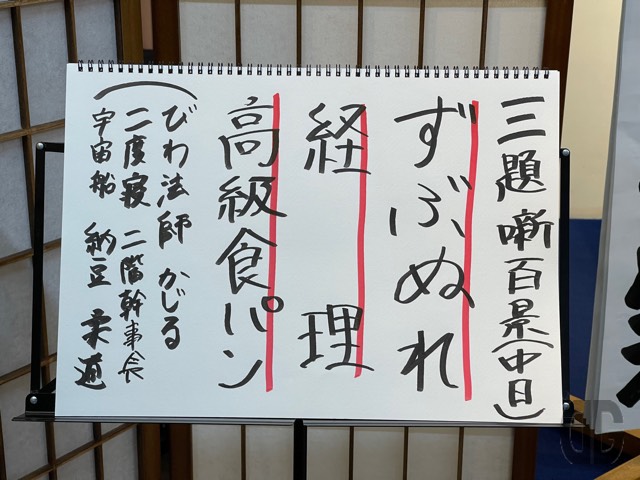 三題噺百景(中日)
ずぶぬれ
経理
高級食パン
(びわ法師 かじる
二度寝 二階幹事長
宇宙船 納豆 柔道